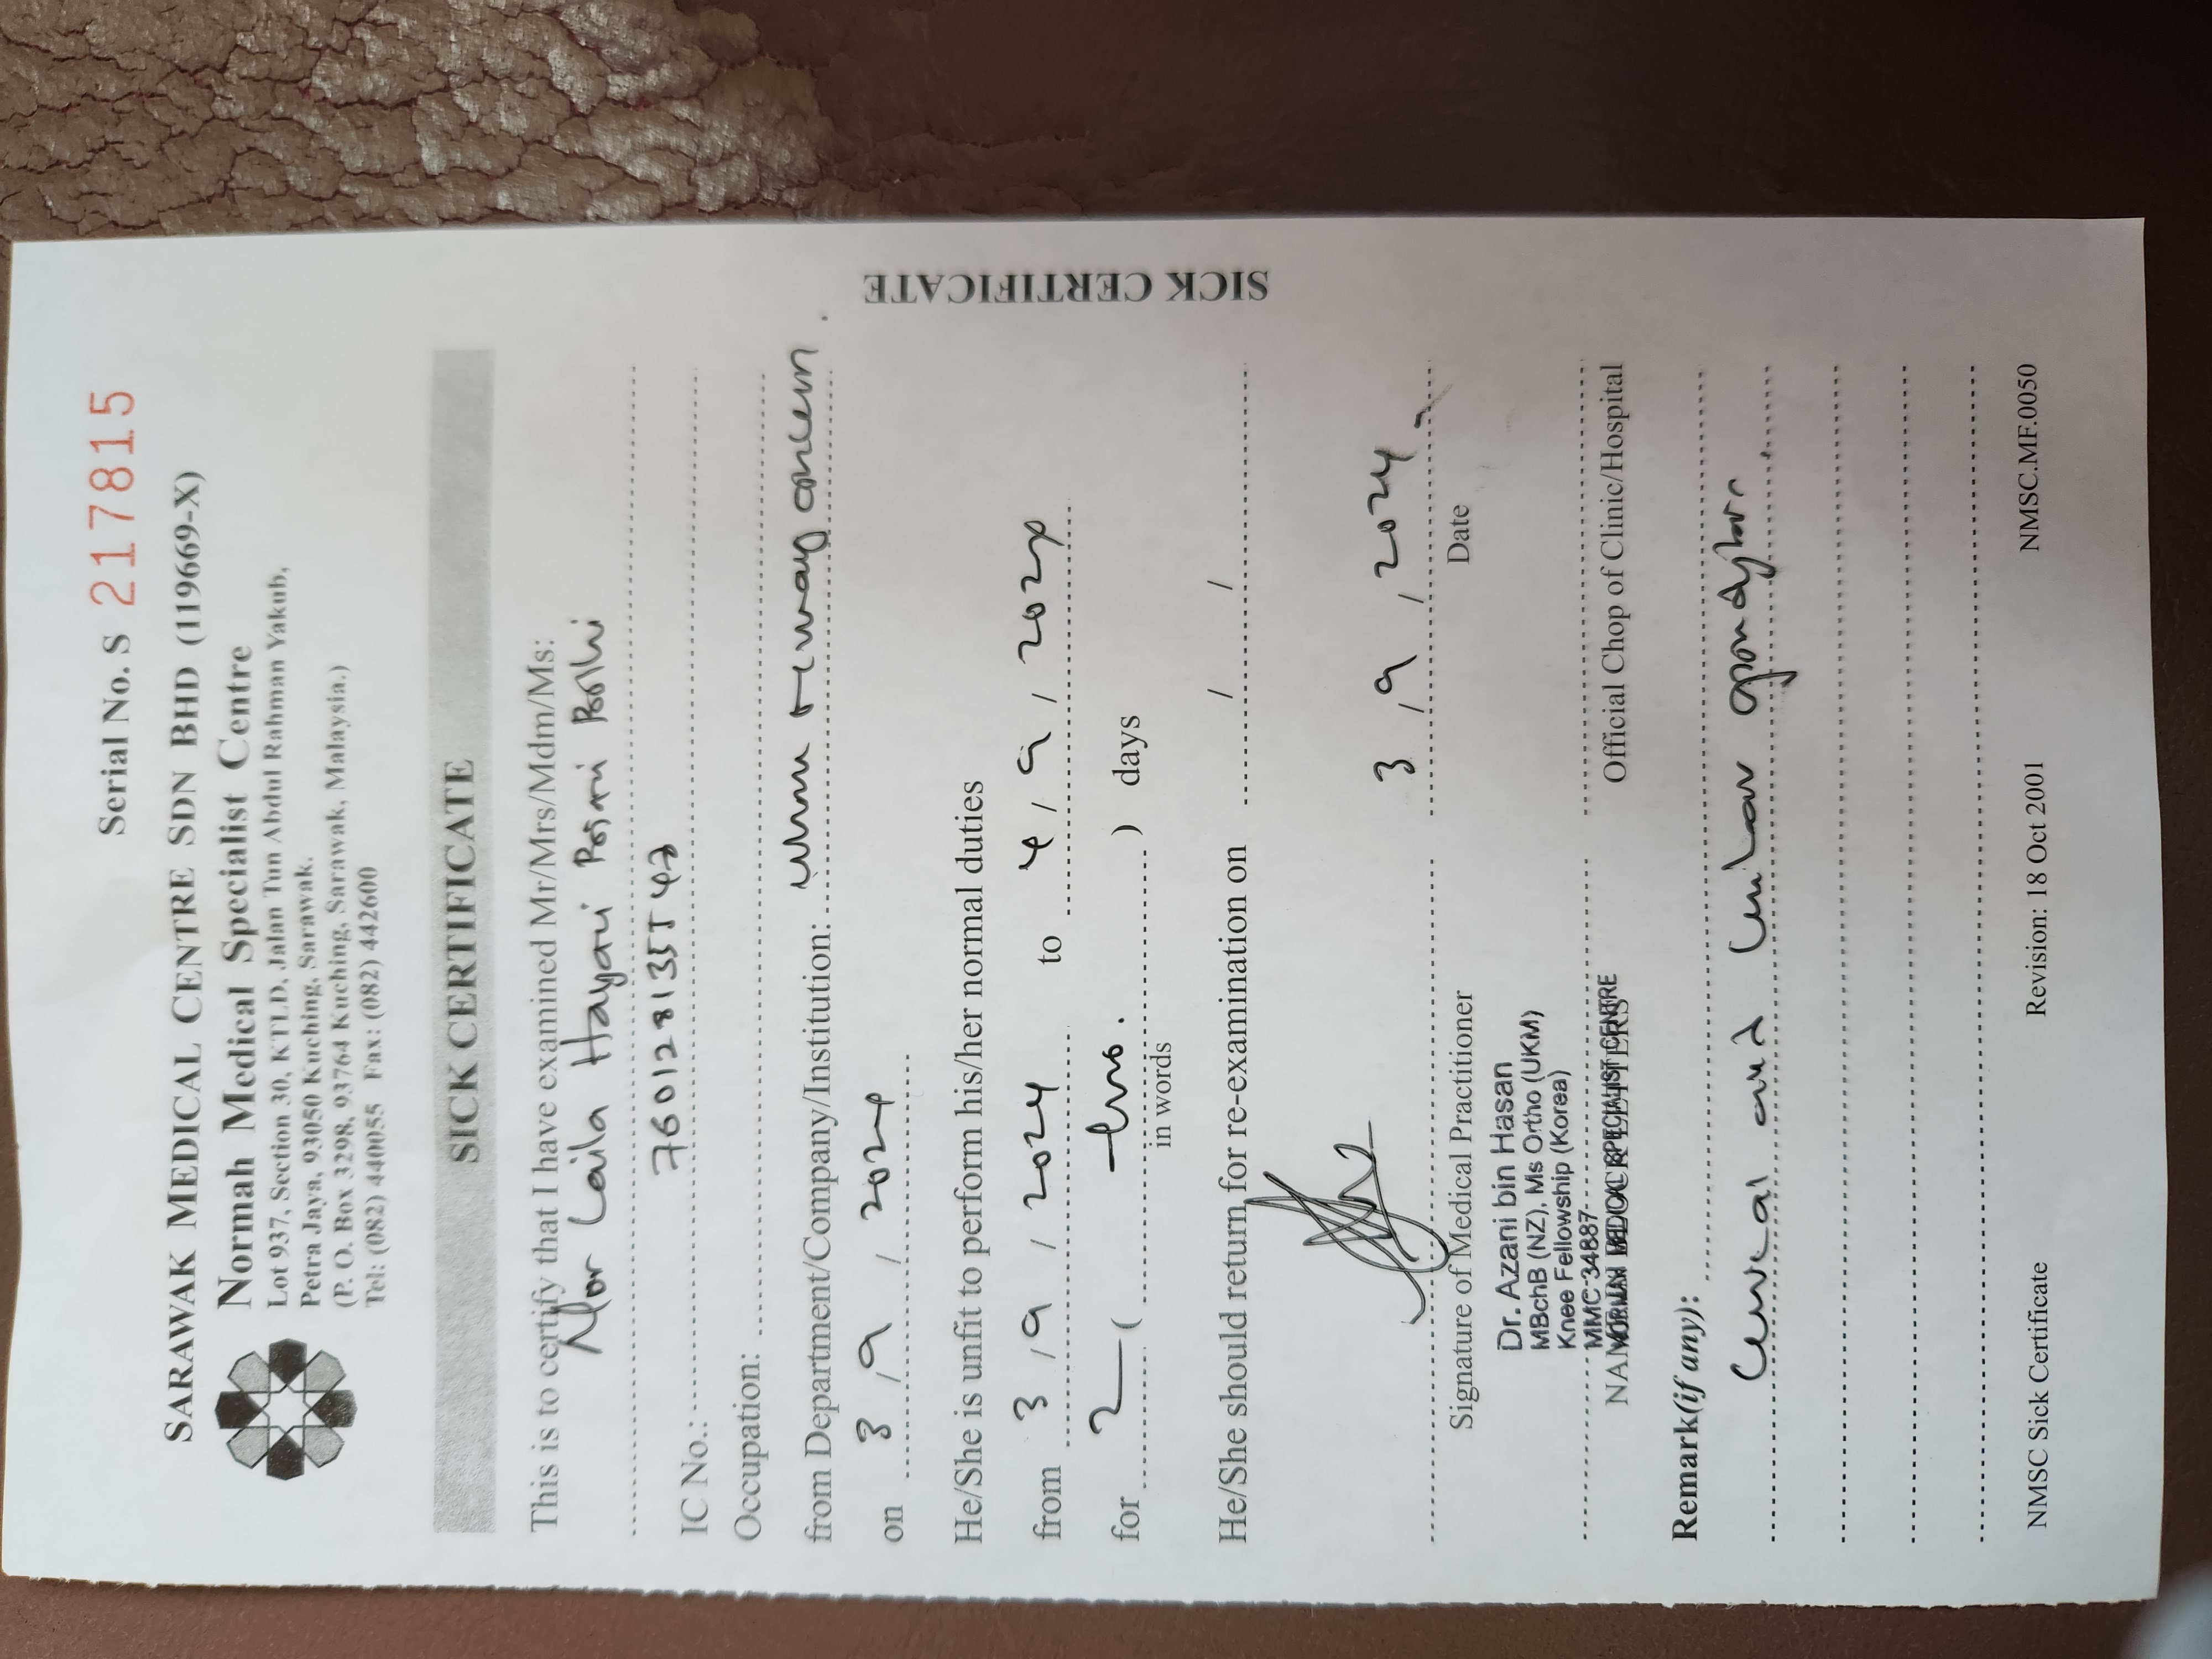 Serial No. S 217815
SARAWAK MEDICAL CENTRE SDN BHD (119669-X)
Normah Medical Specialist Centre
Lot 937, Section 30, KTLD, Jalan Tun Abdul Rahman Yakub,
Petra Jaya, 93050 Kuching, Sarawak.
(P. O. Box 3298, 93764 Kuching, Sarawak, Malaysia.)
Tel: (082) 440055 Fax: (082) 442600
SICK CERTIFICATE
This is to certify that I have examined Mr/Mrs/Mdm/Ms:
Nor Laila Hayani
IC No.:
Occupation:
from Department/Company/Institution: concern
on 3 / 9 / 2024
He/She is unfit to perform his/her normal duties
from 3 / 9 / 2024 to 4 / 9 / 2024
for 2 ( two. ) days
in words
He/She should return for re-examination on / /
3 / 9 / 2024
Signature of Medical Practitioner Date
Dr. Azani bin Hasan
MBchB (NZ), Ms Ortho (UKM)
Knee Fellowship (Korea)
MMC 34887
NORMAH MEDICAL SPECIALIST CENTRE
NAME IN BLOCK LETTERS Official Chop of Clinic/Hospital
Remark(if any):
and
NMSC Sick Certificate Revision: 18 Oct 2001 NMSC.MF.0050
SICK CERTIFICATE